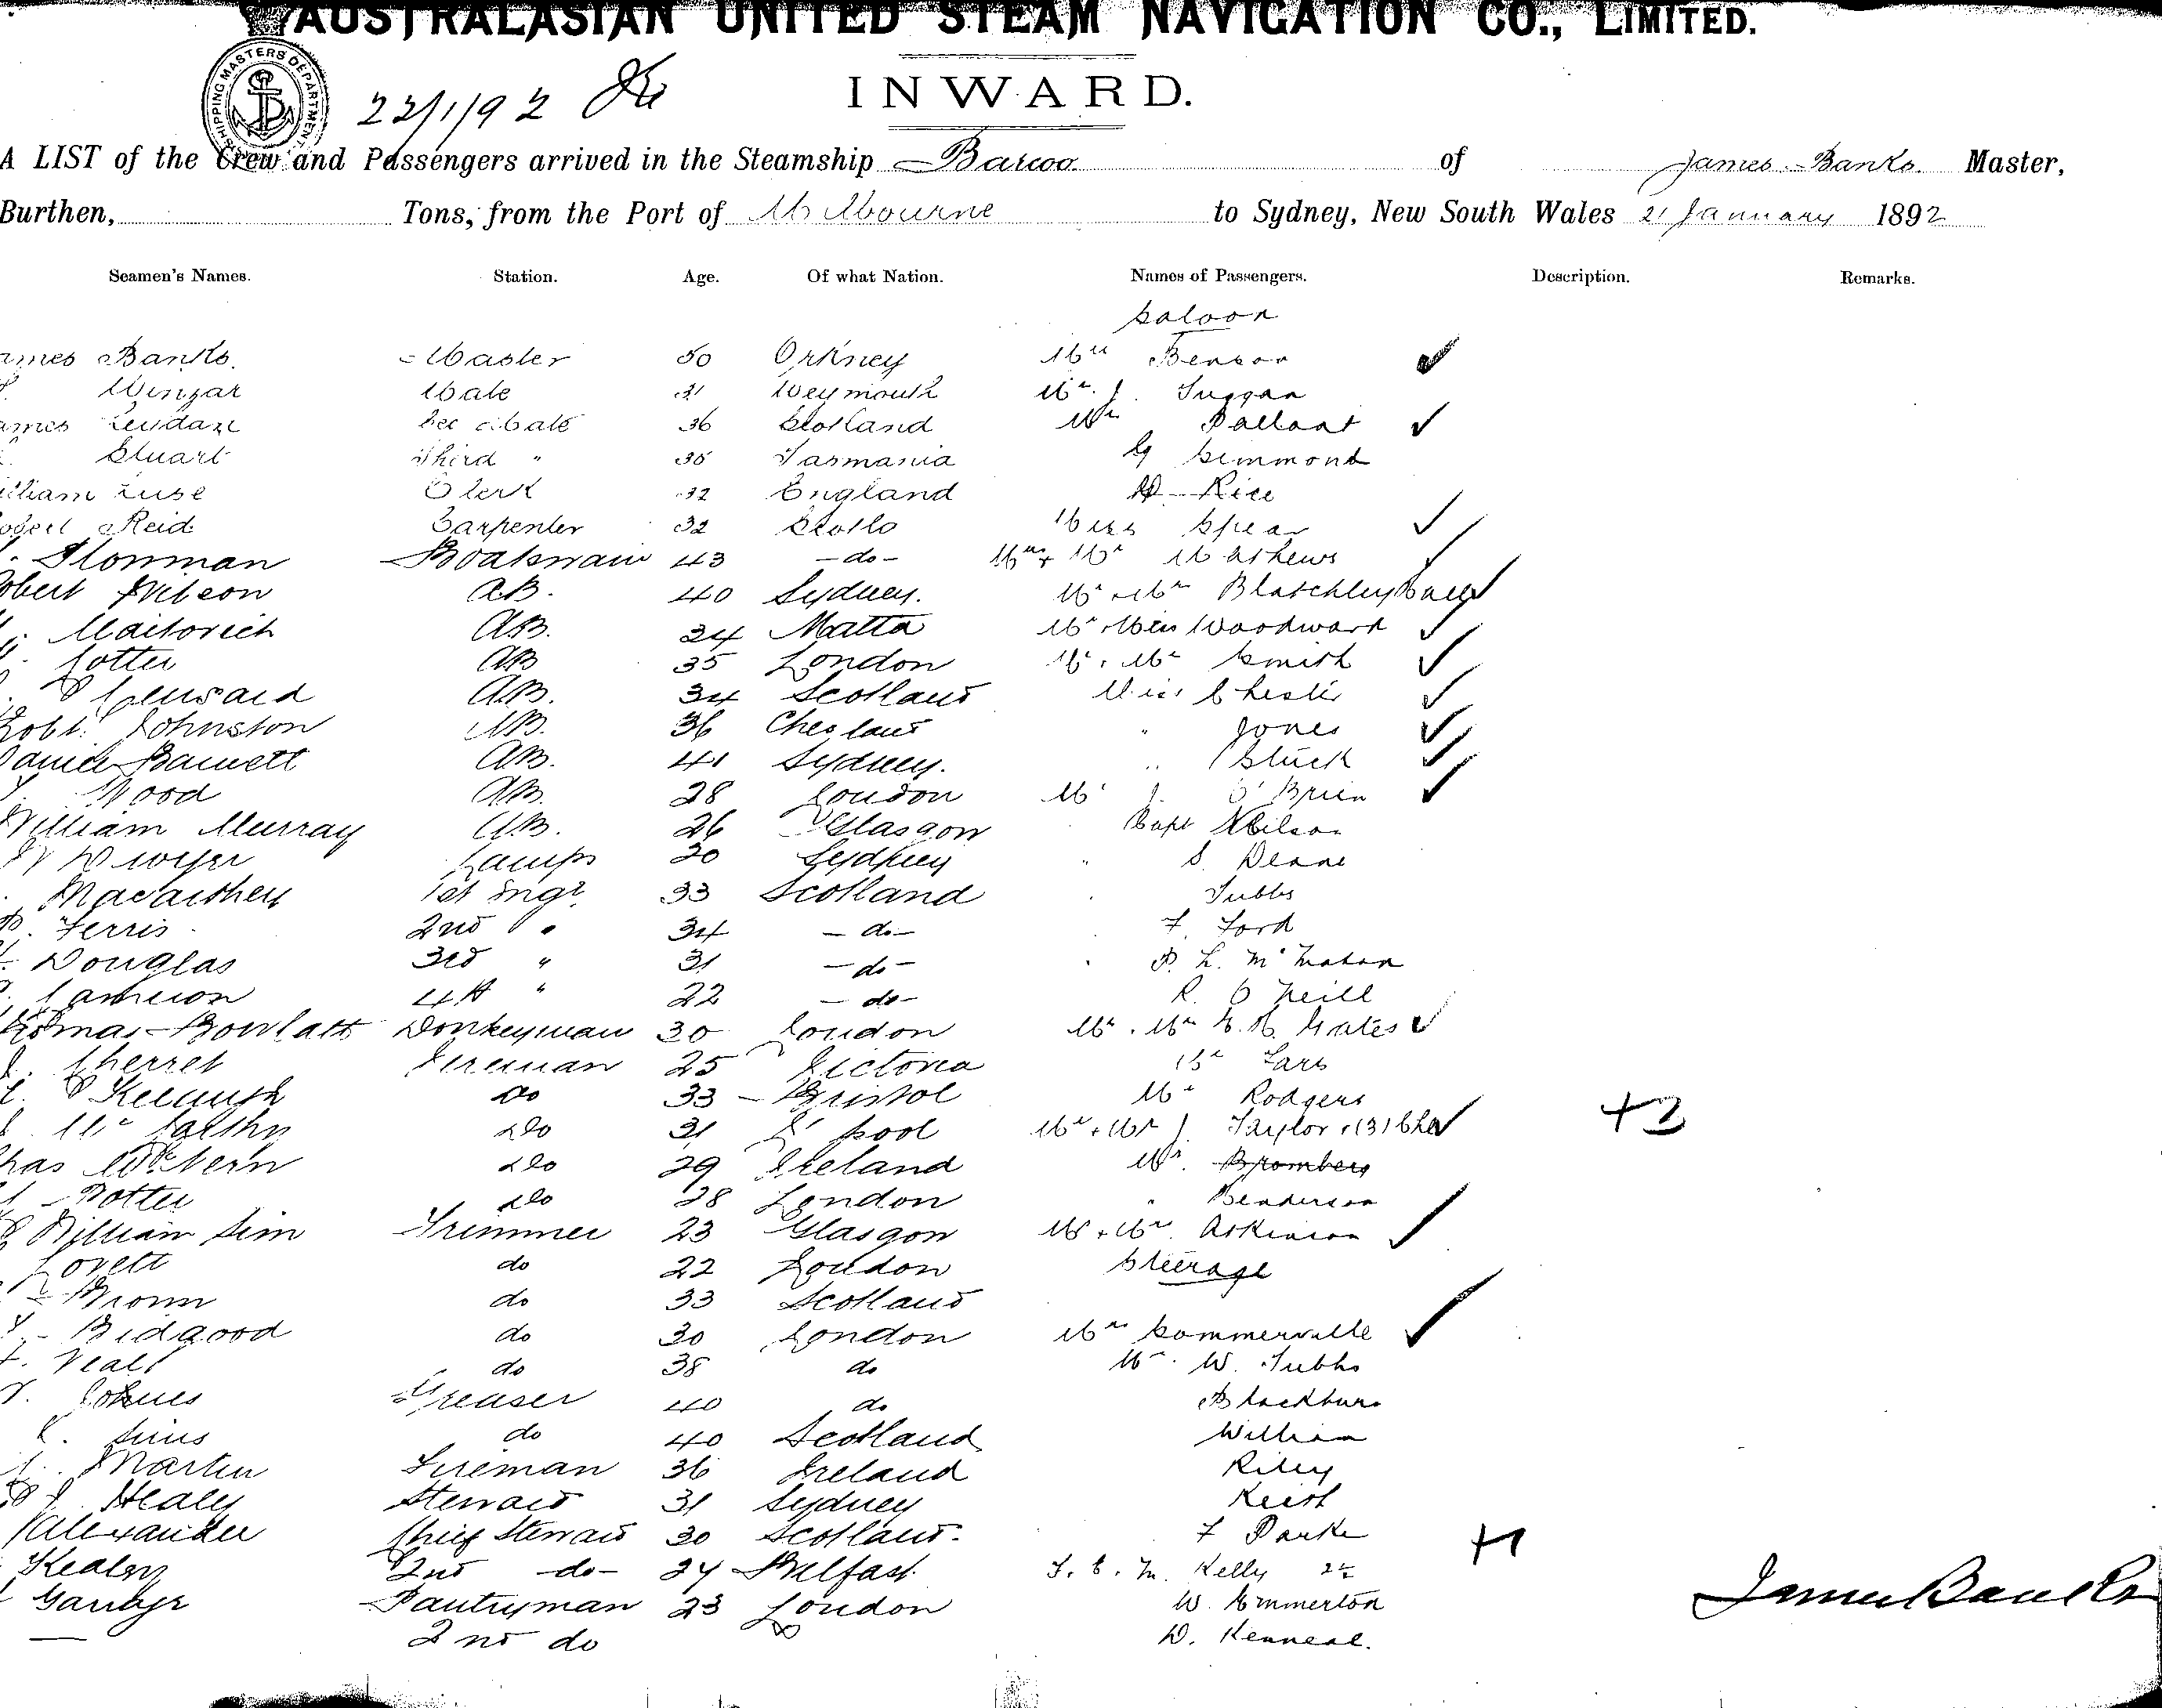 AUSTRALASIAN UNITED STEAM NAVIGATION CO., LIMITED.
SHIPPING MASTERS DEPARTMENT
22/1/92
INWARD.
A LIST of the Crew and Passengers arrived in the Steamship Barcoo of James Banks Master,
Burthen, Tons, from the Port of Melbourne to Sydney, New South Wales 21 January 1892
Seamen's Names. Station. Age. Of what Nation. Names of Passengers. Description. Remarks.
Saloon
ames Banks. Master 50 Orkney Mrs Benson
Winzar Mate 31 Weymouth Mr. J. Duggan
ames Sec Mate 36 Scotland Mrs Pallant
Stuart Third " 35 Tasmania G Simmons
illiam Luse Clerk 32 England Rice
obert Reid Carpenter 32 Scotld Miss Spear
Slonman Boatswain 43 - do - Mrs + Mr Mathews
obert Wilson AB. 40 Sydney. Mr + Mrs Blatchley
AB. 24 Malta Mr + Miss Woodward
Cotter AB 35 London Mr + Mrs Smith
AB. 34 Scotland Miss Chester
Robt. Johnston AB. 36 " Jones
Daniel Barnett AB. 41 Sydney. " Stuck
Wood AB. 28 London Mr J. O'Brien
William Murray AB. 26 Glasgow Capt Neilson
Dwyer Lamps 20 Sydney " S. Deane
Macarthey 1st Engr. 33 Scotland Tubbs
Ferris 2nd " 34 - do - F. Ford
Douglas 3rd " 31 - do - P. L. McMahon
Cameron 4th " 22 - do - R. O Neill
Thomas Bowlatt Donkeyman 30 London Mr + Mrs Gates
Cherret Fireman 25 Victoria Lars
do 33 Bristol Mr Rodgers
Mc Carthy do 31 L'pool Mr + Mrs J. Taylor + (3) Chn +3
has do 29 Ireland Mr. Bromberg
Potter do 28 London " Henderson
William Sim Trimmer 23 Glasgow Mr + Mrs. Atkinson
Lovett do 22 London Steerage
Brown do 33 Scotland
Bidgood do 30 London Mrs Sommerville
Neale do 38 do Mr. W. Tubbs
Johnes Greaser 40 do Blackburn
Sims do 40 Scotland William
Martin Fireman 36 Ireland Riley
Healy Steward 31 Sydney Keith
Alexander Chief Steward 30 Scotland. F Parke
Kealey 2nd - do - 24 Belfast. Kelly +1
Pantryman 23 London W. Emmerton James Banks
2nd do D. Kenneal.